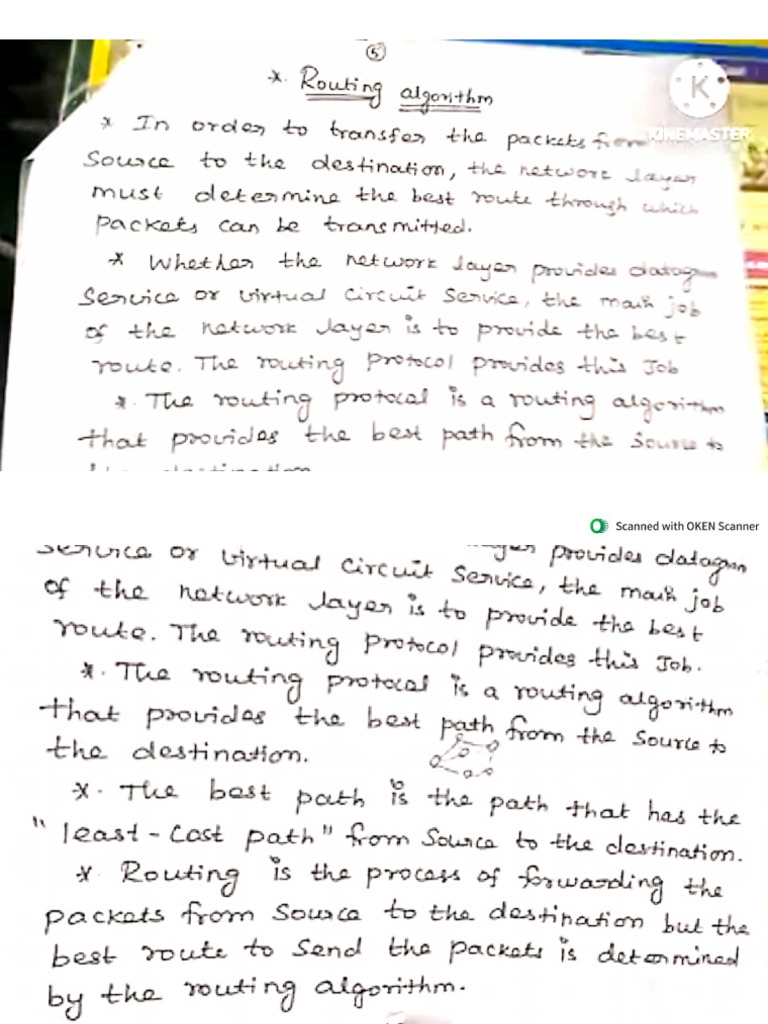 5
* Routing algorithm
K
KINEMASTER
* In order to transfer the packets from
Source to the destination, the network layer
must determine the best route through which
packets can be transmitted.
* Whether the network layer provides datagram
Service or virtual circuit Service, the main job
of the network layer is to provide the best
route. The routing protocol provides this Job
* The routing protocal is a routing algorithm
that provides the best path from the source to
Scanned with OKEN Scanner
Service or virtual circuit Service, the main job
provides datagram
of the network layer is to provide the best
route. The routing protocol provides this Job.
* The routing protocal is a routing algorithm
that provides the best path from the source to
the destination.
* The best path is the path that has the
"least-cost path" from Source to the destination.
* Routing is the process of forwarding the
packets from Source to the destination but the
best route to Send the packets is determined
by the routing algorithm.